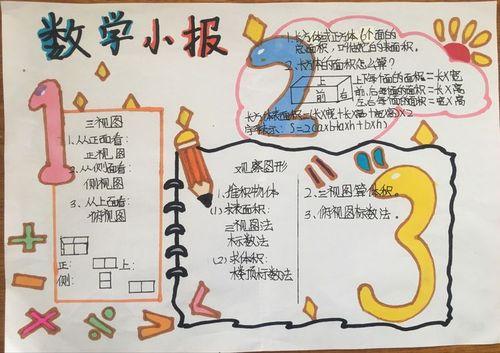 数学小报
1
三视图
1、从正面看：
正视图
2、从侧面看：
侧视图
3、从上面看：
俯视图
正：
上：
侧：
2
1.长方体或正方体6个面的
总面积，叫做它的表面积。
2.长方体的面积怎么算？
上
前
右
上下每个面的面积=长×宽
前、后每个面的面积=长×高
左右每个面的面积=宽×高
长方体表面积=(长×宽+长×高+宽×高)×2
字母表示：S=2(a×b+a×h+b×h)
观察图形
1、堆积物体
(1)求表面积：
三视图法
标数法
(2)求体积：
楼顶标数法
2.三视图算体积。
3、俯视图标数法。
3